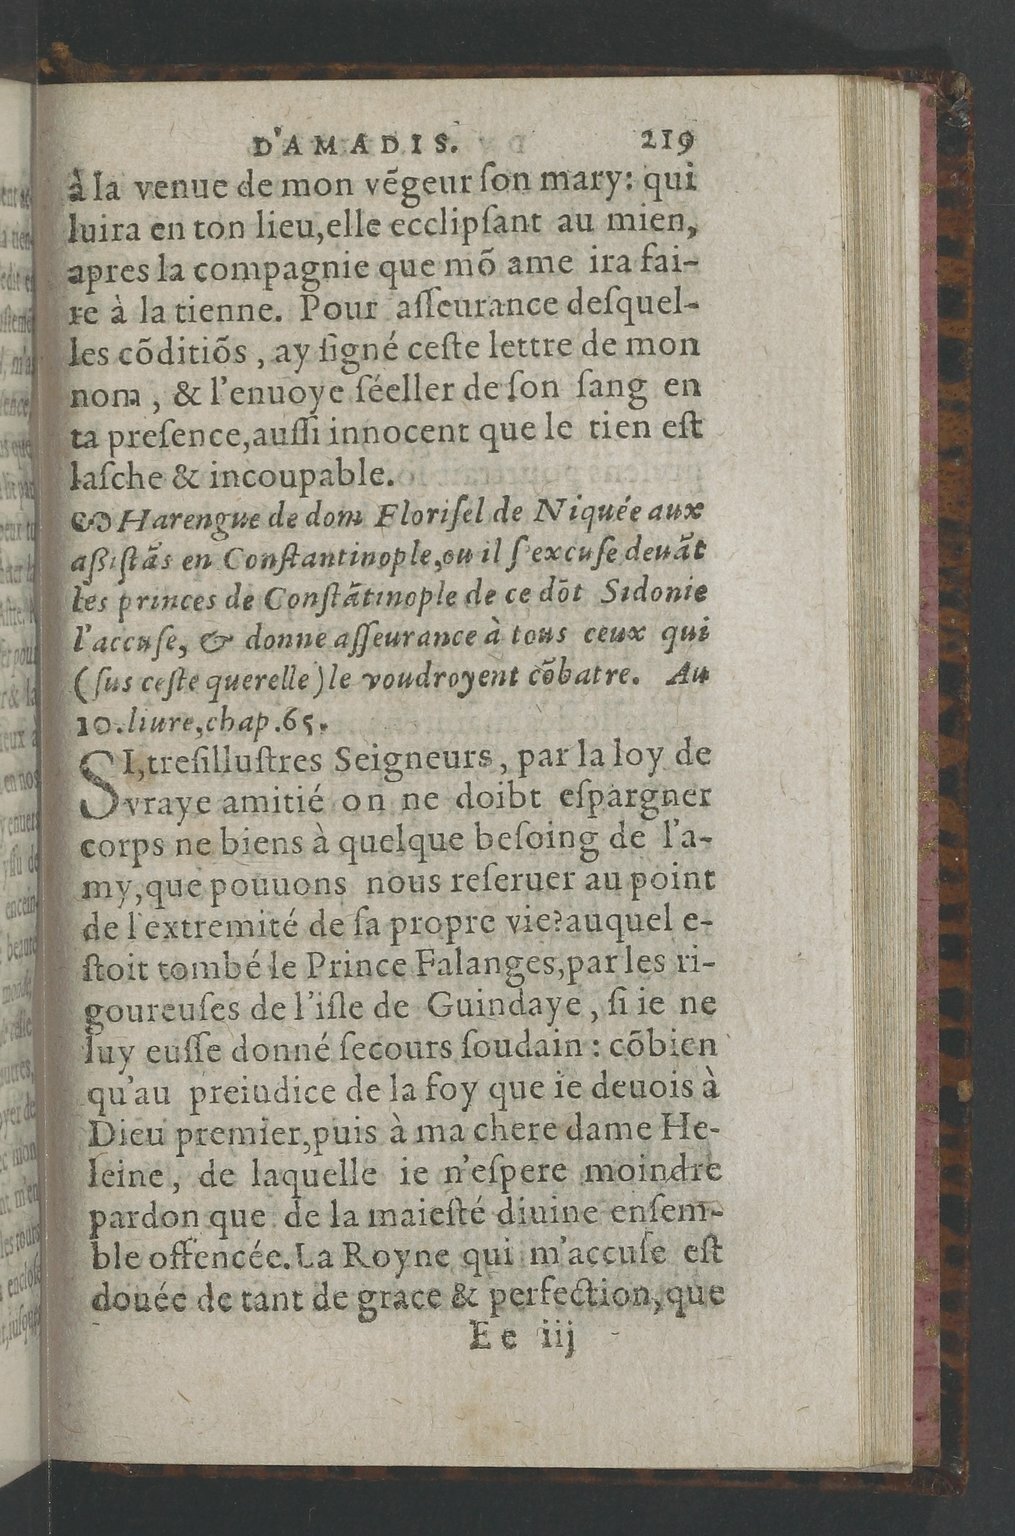 D'AMADIS. 219
à la venue de mon vẽgeur ſon mary: qui
luira en ton lieu,elle ecclipſant au mien,
apres la compagnie que mõ ame ira fai-
re à la tienne. Pour aſſeurance deſquel-
les cõditiõs , ay ſigné ceſte lettre de mon
nom , & l'enuoye ſéeller de ſon ſang en
ta preſence,auſſi innocent que le tien eſt
laſche & incoupable.
Harengue de dom Floriſel de Niquée aux
aßiſtãs en Conſtantinople,ou il ſ'excuſe deuãt
les princes de Conſtãtinople de ce dõt Sidonie
l'accuſe, & donne aſſeurance à tous ceux qui
(ſus ceſte querelle) le voudroyent cõbatre. Au
10.liure,chap.65.
SI,treſilluſtres Seigneurs, par la loy de
vraye amitié on ne doibt eſpargner
corps ne biens à quelque beſoing de l'a-
my,que pouuons nous reſeruer au point
de l'extremité de ſa propre vie?auquel e-
ſtoit tombé le Prince Falanges,par les ri-
goureuſes de l'iſle de Guindaye , ſi ie ne
luy euſſe donné ſecours ſoudain : cõbien
qu'au preiudice de la foy que ie deuois à
Dieu premier,puis à ma chere dame He-
leine, de laquelle ie n'eſpere moindre
pardon que de la maieſté diuine enſem-
ble offencée.La Royne qui m'accuſe eſt
douée de tant de grace & perfection,que
Ee iij